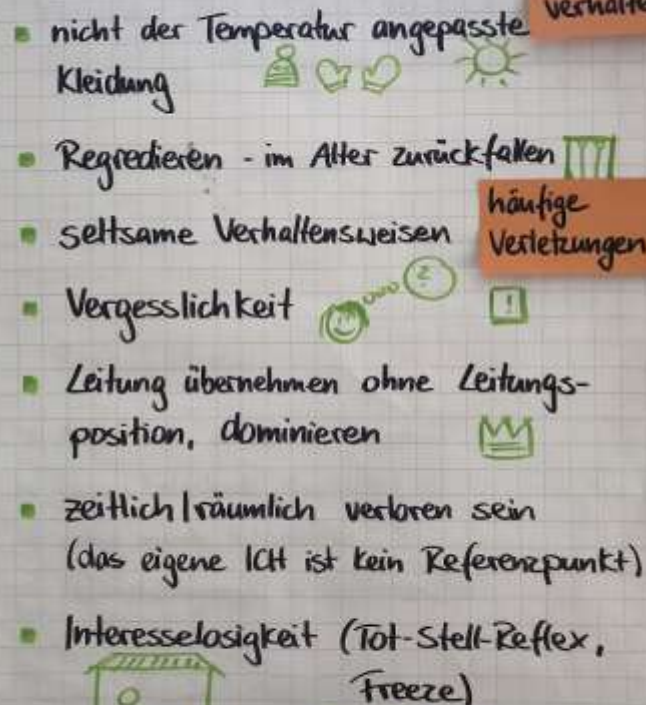 verhalte
nicht der Temperatur angepasste
Kleidung
Regredieren - im Alter zurückfallen
häufige
Verletzungen
seltsame Verhaltensweisen
Vergesslichkeit
?
!
Leitung übernehmen ohne Leitungs-
position, dominieren
zeitlich/räumlich verloren sein
(das eigene ICH ist kein Referenzpunkt)
Interesselosigkeit (Tot-Stell-Reflex,
Freeze)